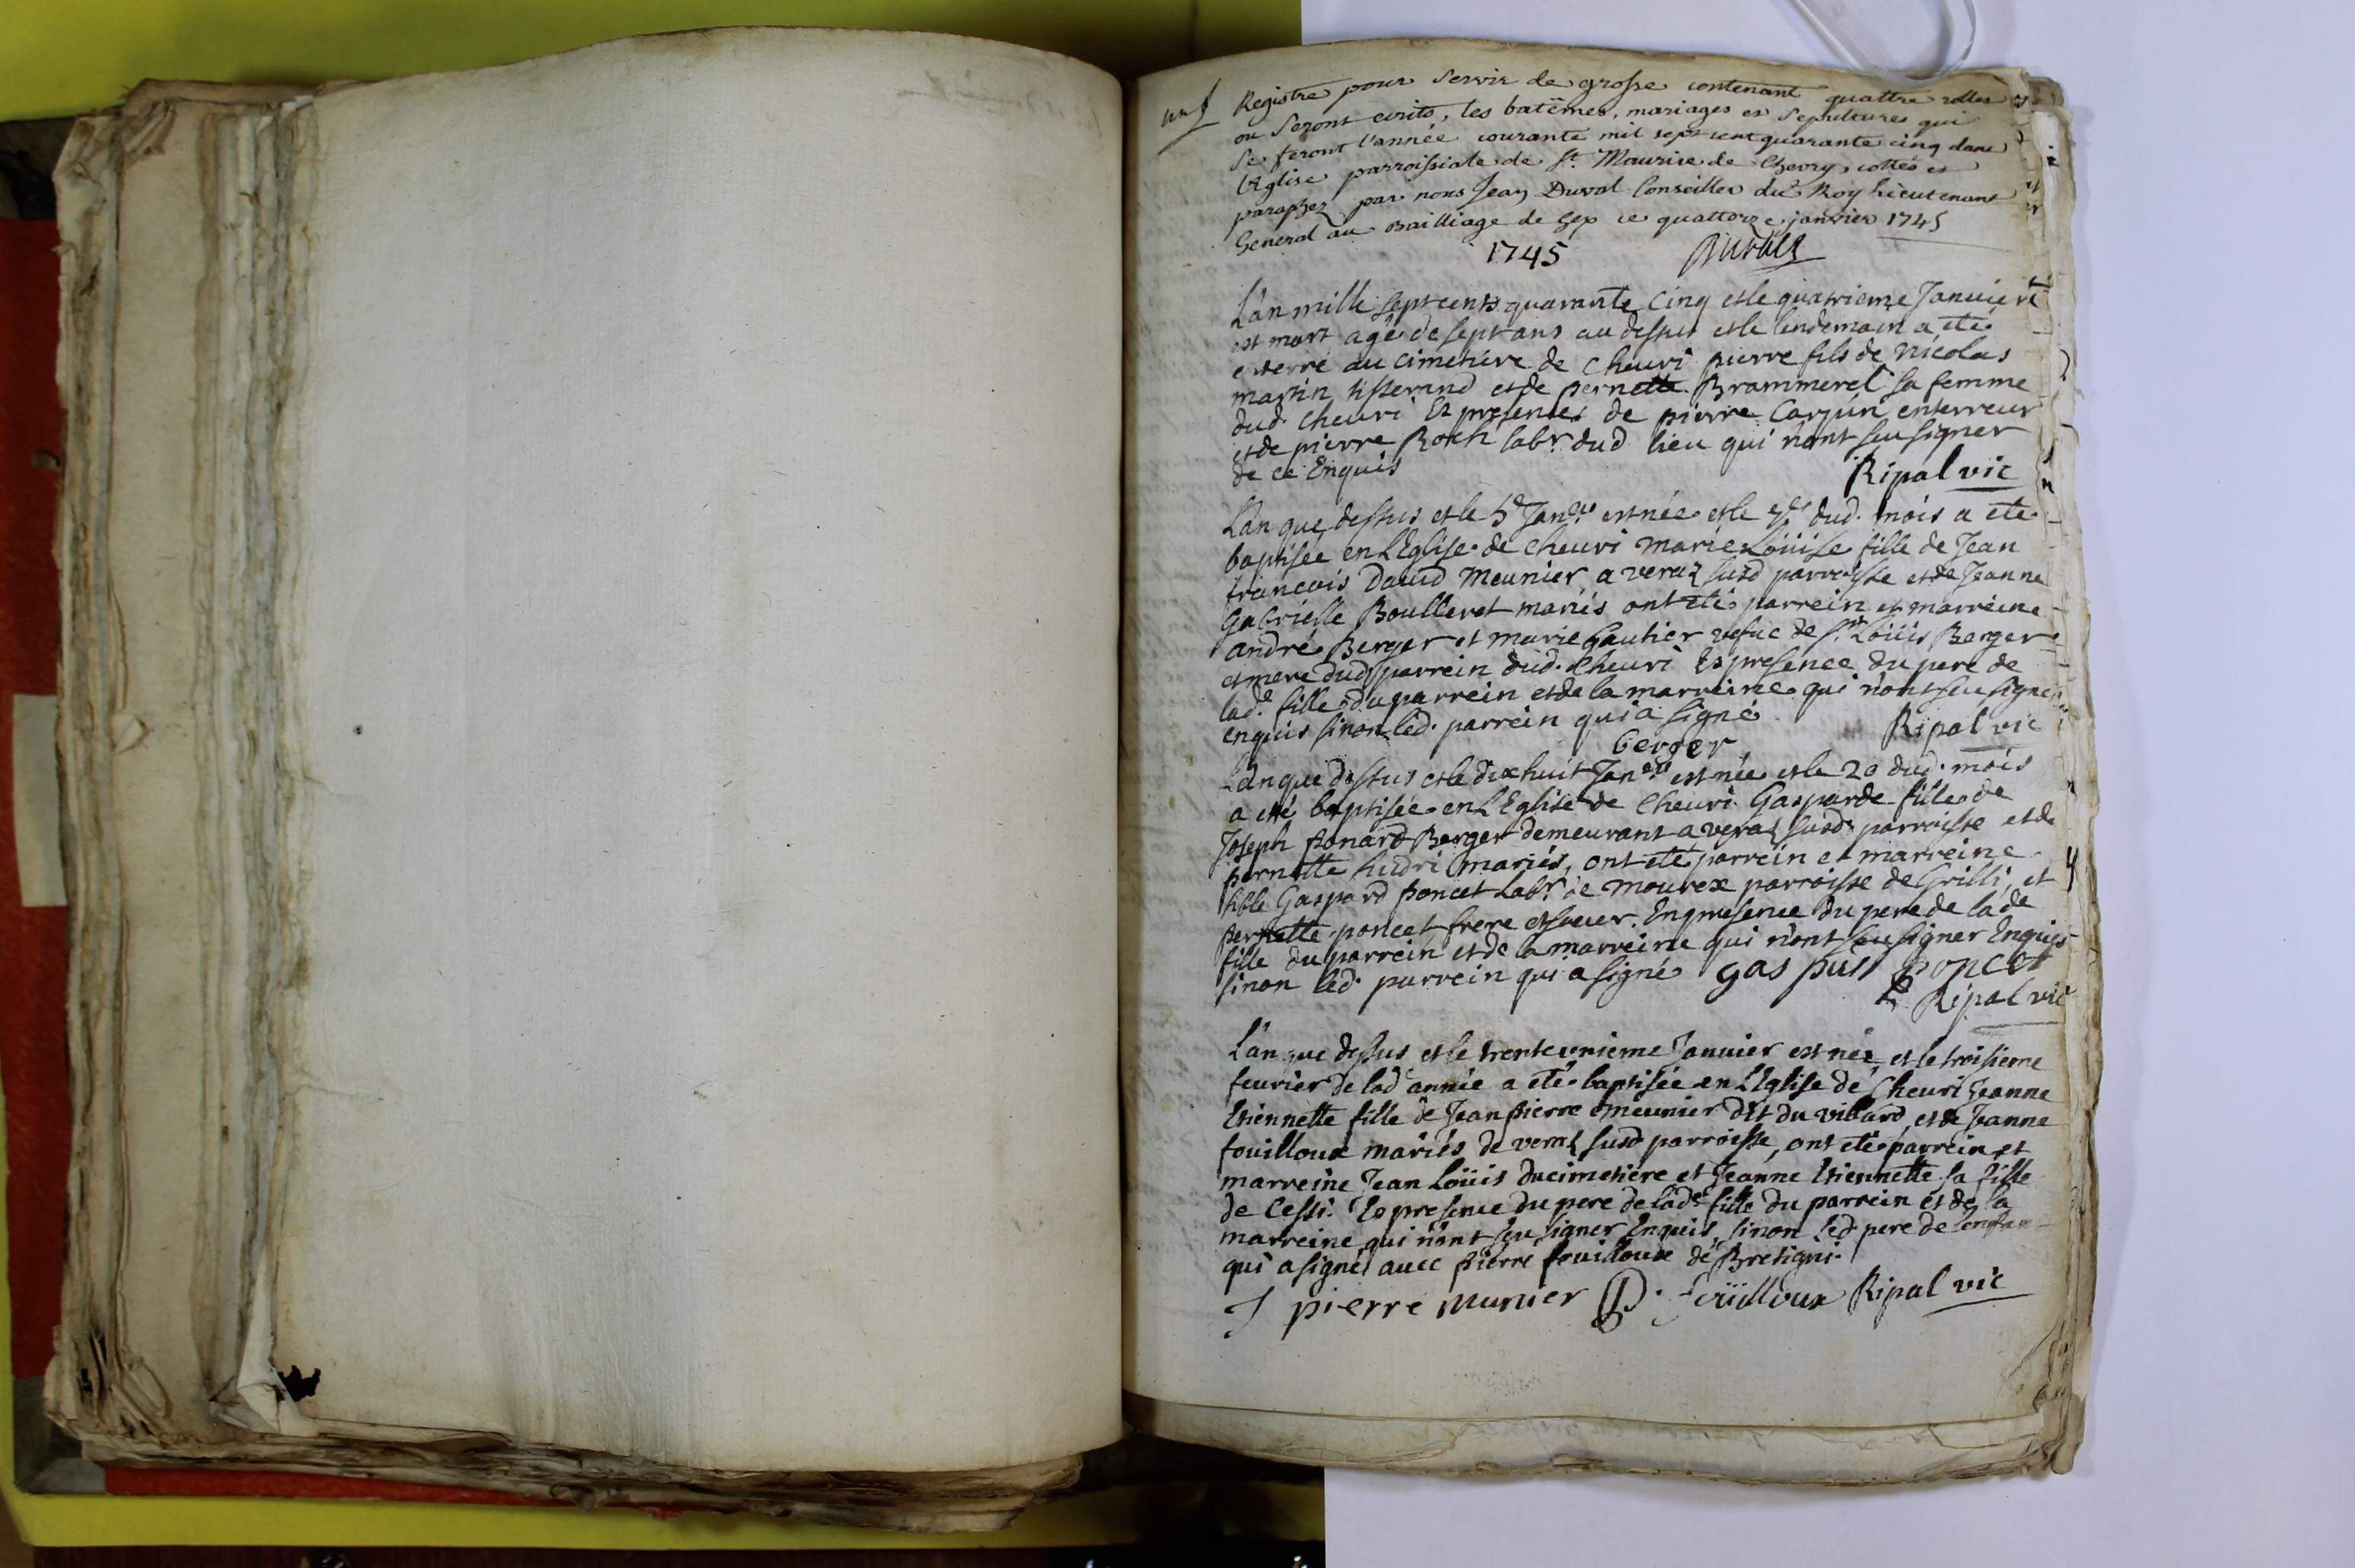 un
Registre pour servir de grosse contenant quattre rolles
ou seront ecrits, les batêmes, mariages et sepultures qui
se feront l'année courante mil sept cent quarante cinq dans
l'Eglise parroissiale de St. Maurice de Chevry, cottés et
paraphez par nous Jean Duval Conseiller du Roy Lieutenant
General au Bailliage de Gex ce quattorze janvier 1745
1745 Duval
L'an mille sept cents quarante cinq et le quatrieme Januier
est mort agé de sept ans au dessus et le lendemain a eté
enterré au cimetiere de Cheuri pierre fils de Nicolas
martin tisserand et de Pernette Brammerel sa femme
dud. Cheuri Es presences de pierre Carjun enterreur
et de pierre Roch labr. dud. lieu qui n'ont seu signer
de ce Enquis Ripal vic
L'an que dessus et le 5e Janer est née et le dud. mois a eté
baptisée en L'Eglise de Cheuri marie Loüise fille de Jean
francois David Meunier a veraz susd parroisse et de Jeanne
Gabrielle Boulleret mariés ont eté parrein et marreine
andré Berger et marie Gautier vefue de sr. Loüis Berger
et mere dud parrein dud. Cheuri Es presence du pere de
lade. fille du parrein et de la marreine qui n'ont seu signer
enquis sinon led. parrein qui a signé Ripal vic
berger
L'an que dessus et le dixhuit Janer est née et le 20 dud. mois
a eté baptisée en L'Eglise de Cheuri Gasparde fille de
Joseph Ponard Berger demeurant a veraz susd. parroisse et de
pernette hudri mariés, ont eté parrein et marreine
hble Gaspard Poncet Labr. de mourex parroisse de Grilli, et
Pernette poncet frere et soeur. En presence du pere de lade
fille du parrein et de la marreine qui n'ont seu signer Enquis
sinon led. parrein qui a signé gas pard poncet
Ripal vic
L'an que dessus et le trente unieme Januier est née, et le troisieme
feurier de lad année a eté baptisée en L'Eglise de Cheuri Jeanne
Etiennette fille de Jean Pierre Meunier dit du villard, et de Jeanne
fouilloux mariés de veraz susd parroisse, ont eté parrein et
marreine Jean Loüis Ducimetiere et Jeanne Etiennette sa fille
de Cessi. Es presence du pere de lade fille du parrein et de la
marreine qui n'ont seu signer Enquis, sinon led pere de l'enfan
qui a signé auec Pierre fouilloux de Bretigni.
J pierre munier P. foüilloux Ripal vic